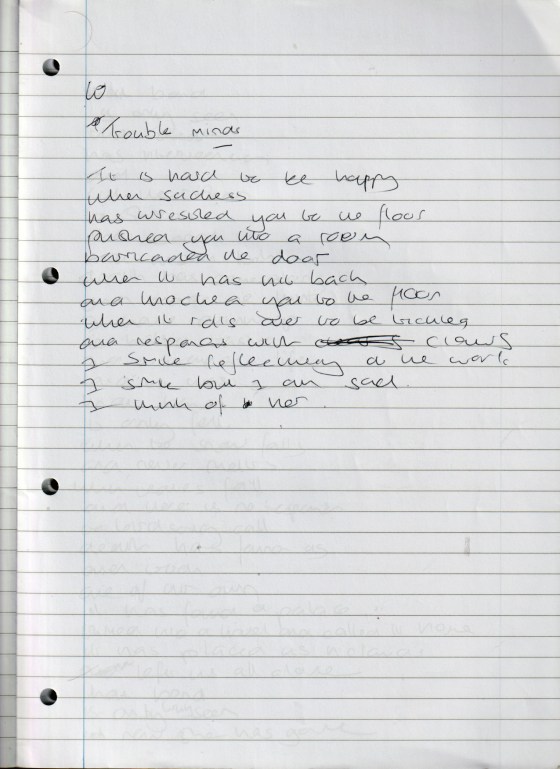 10
Trouble minds
It is hard to be happy
when sadness
has wrestled you to the floor
pushed you into a room
barricaded the door
when it has hit back
and knocked you to the floor
when it rolls over to be tickled
and responds with claws
I smile reflecting at the world
I smile but I am sad.
I think of her.